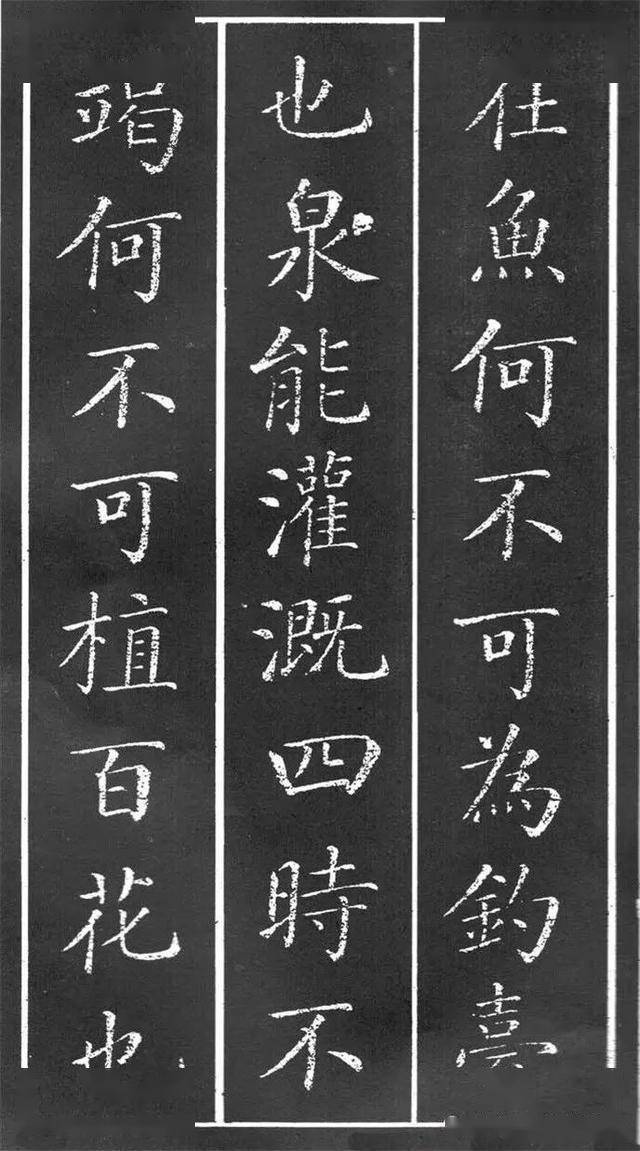 魚何不可為釣臺
也泉能灌溉四時不
竭何不可植百花也